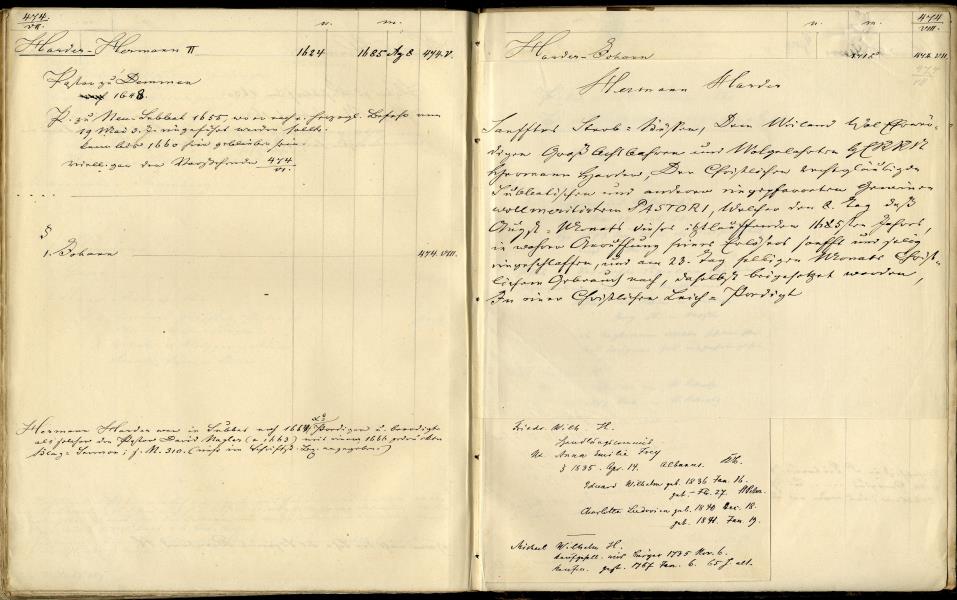 474.
VII.
n. m.
Harder-Hermann II 1624 1685 Ag 8 474.V.
Pastor zu Demmen
1648.
P. zu Neu-Subbat 1655, wo er nach e. herzogl. Befehl vom
19 Mai d. J. eingeführt werden sollte.
kann bis 1660 hier geblieben sein.
Vielleicht gar der Vorstehende 474
VI.
§
1. Johann 474.VIII.
Hermann Harder war in Subbat noch 1664 Prediger u. beerdigte
als solcher den Pastor David Nagler († 1663) mit einem 1666 gedruckten
Sermon; s. M. 310. (nicht im Schriftst. Lex. angegeben.)
474
VIII.
n. m.
Harder-Johann 1715 474.VII.
Hermann Harder
Sanfftes Sterb-Küssen, Dem Weiland HochEhrwür-
digen GroßAchtbahren und Wolgelahrten HERRN
Hermann Harder, Der Christlichen rechtgläubigen
Subbatischen und anderen eingepfarreten Gemeinen
wollmeritirten PASTORI, Welcher den 8. Tag deß
Augst-Monats dieses itztlauffenden 1685sten Jahres,
in wahrer Anruffung seines Erlösers sanfft und selig
eingeschlaffen, und am 23. Tag selbigen Monats Christ-
lichem Gebrauch nach, daselbst beigesetzet worden,
In einer Christlichen Leich-Predigt
Friedr. Wilh. H.
Handlungscommis
Ux. Anna Emilie Frey
§ 1835. Apr. 14. Albanus.
Eduard Wilhelm geb. 1836 Jan. 16.
get. – Fb. 27.
Charlotte Ludovica geb. 1840 Dec. 18.
get. 1841. Jan. 19.
Michael Wilhelm H.
Kaufgesell. wird Bürger 1735 Nov. 6.
gest. 1767 Jan. 6. 65 J. alt.